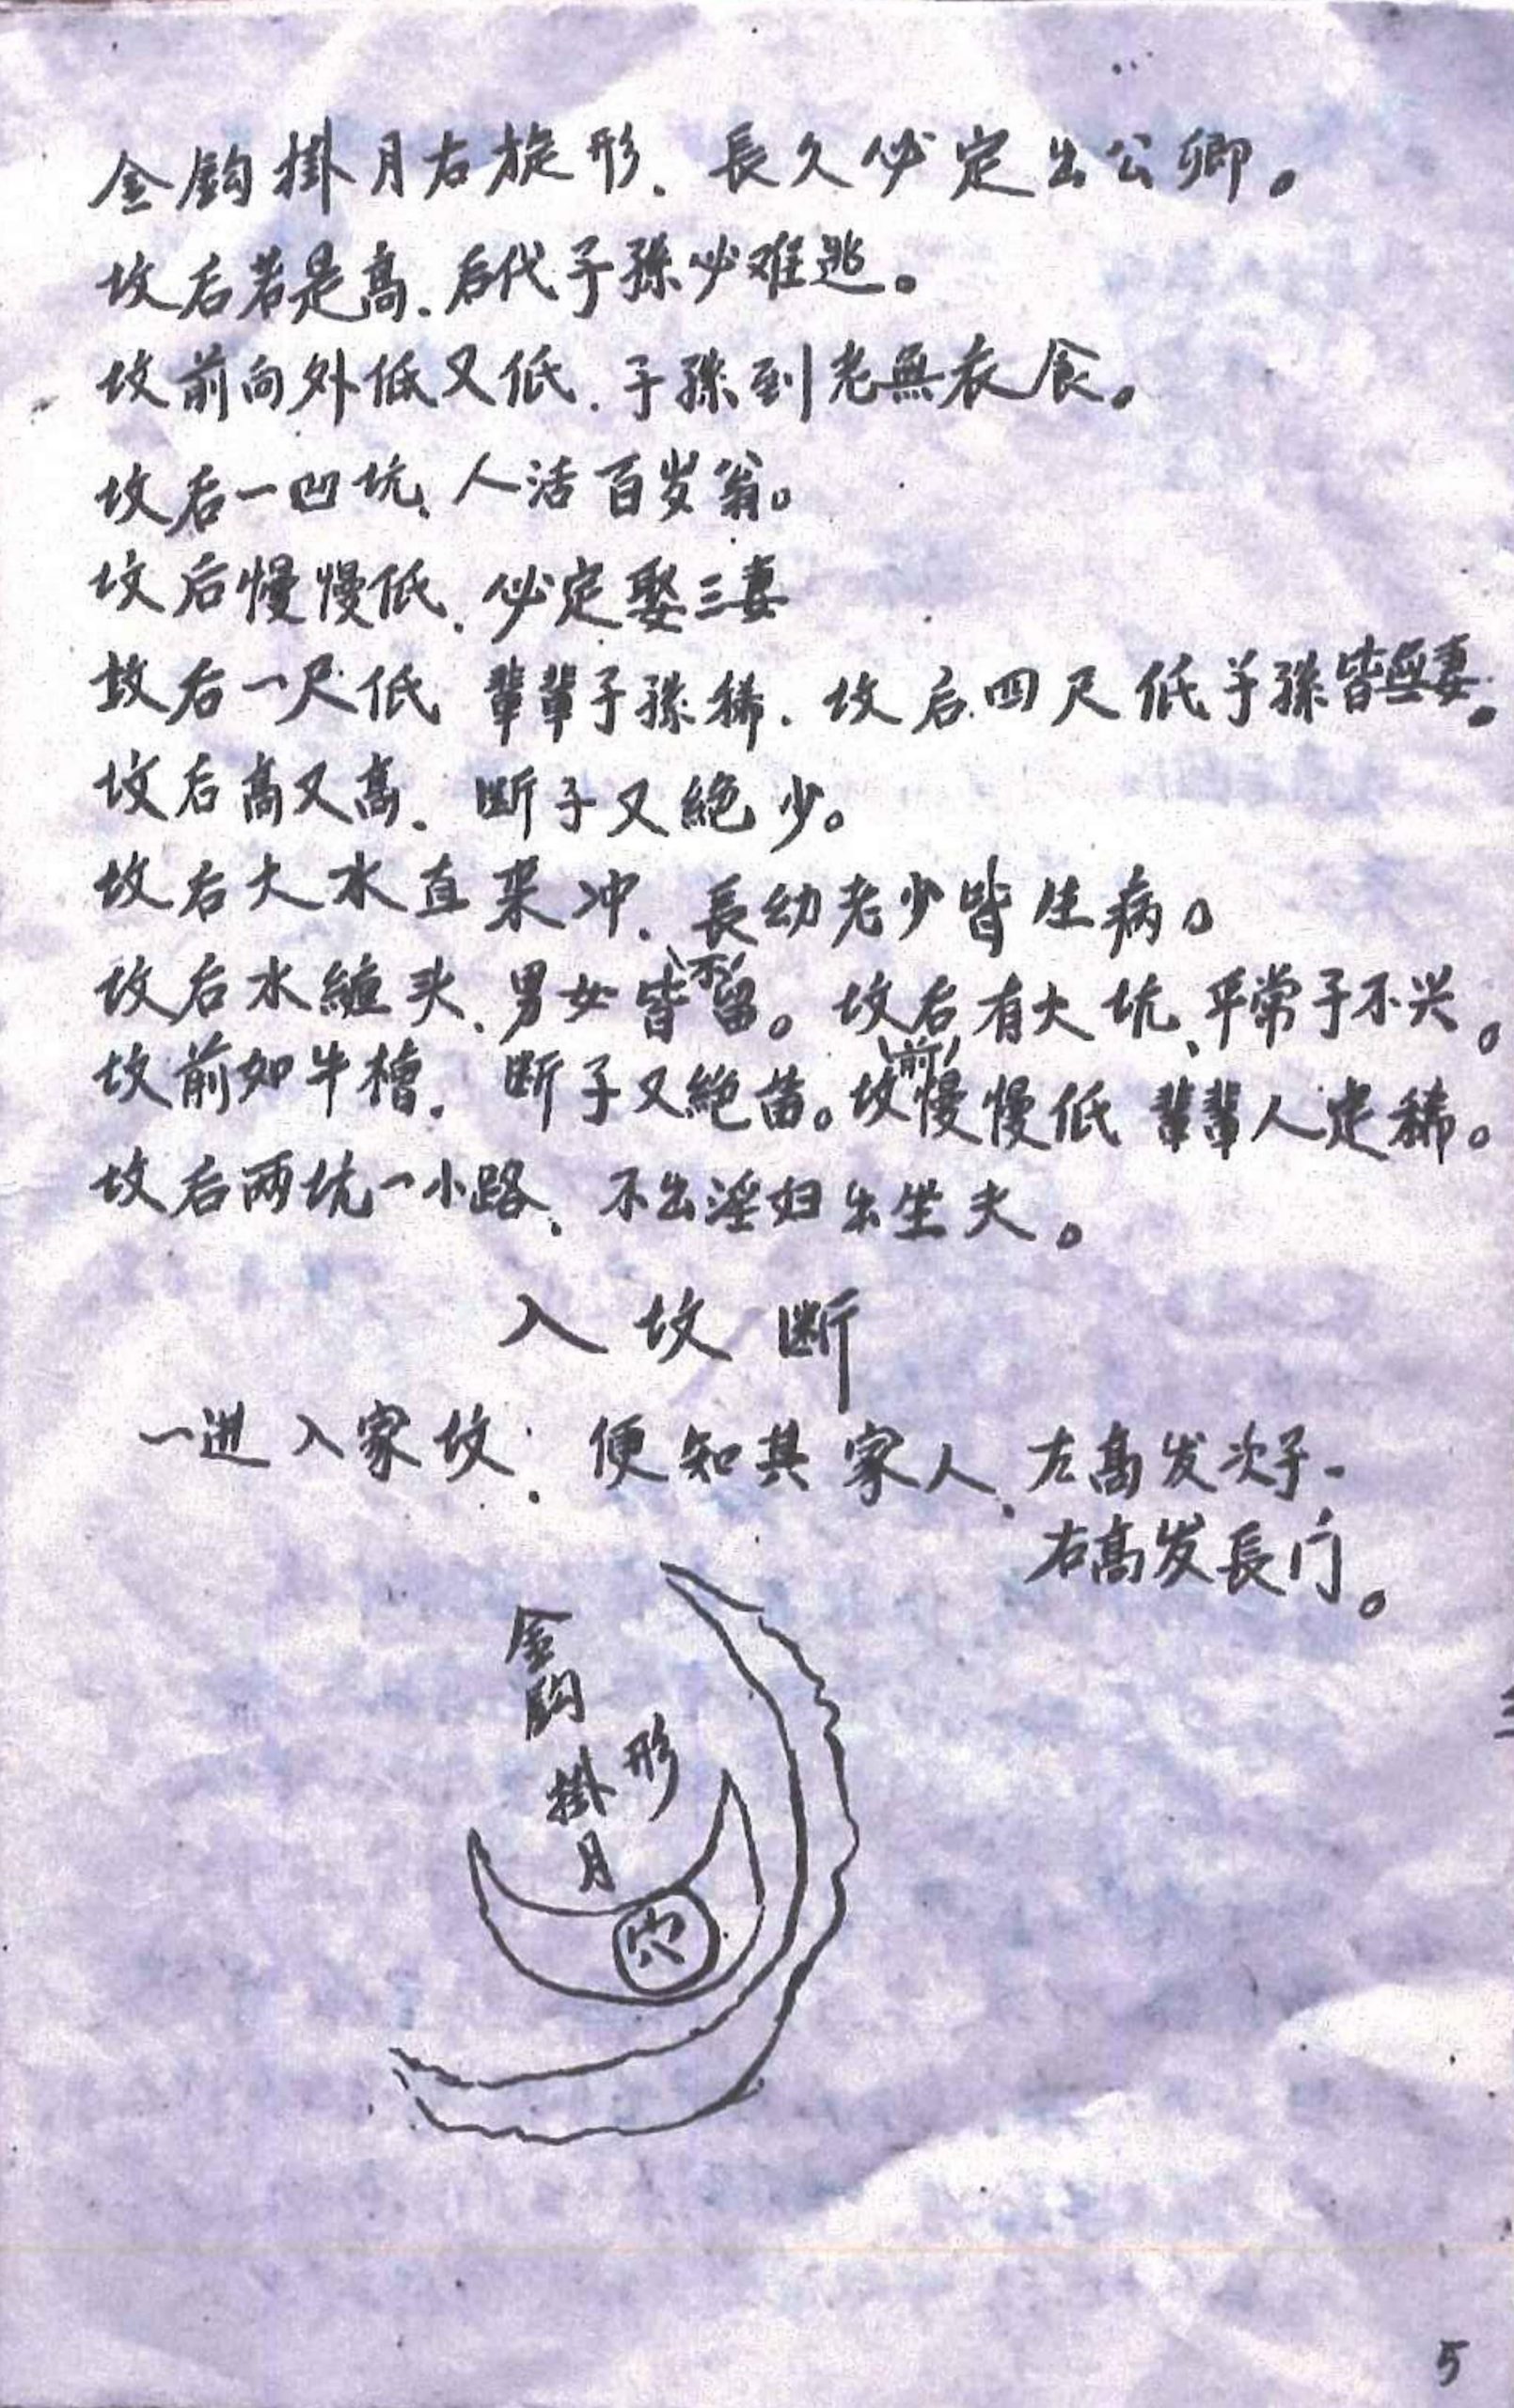 金鈎掛月右旋形、長久必定出公卿。
坟后若是高、后代子孫必难逃。
坟前向外低又低、子孫到老無衣食。
坟后一凹坑、人活百岁翁。
坟后慢慢低、必定娶三妻
坟后一尺低 輩輩子孫稀、坟后四尺低子孫皆無妻。
坟后高又高、断子又絶少。
坟后大水直来冲、長幼老少皆生病。
坟后水纏头、男女皆不留。坟后有大坑、平常子不兴。
坟前如牛槽、断子又絶苗。坟前慢慢低 輩輩人定稀。
坟后两坑一小路、不出淫妇出坐夫。
入坟断
一进入家坟、便知其家人、左高发次子、
右高发長门。
金鈎掛月形
穴
5